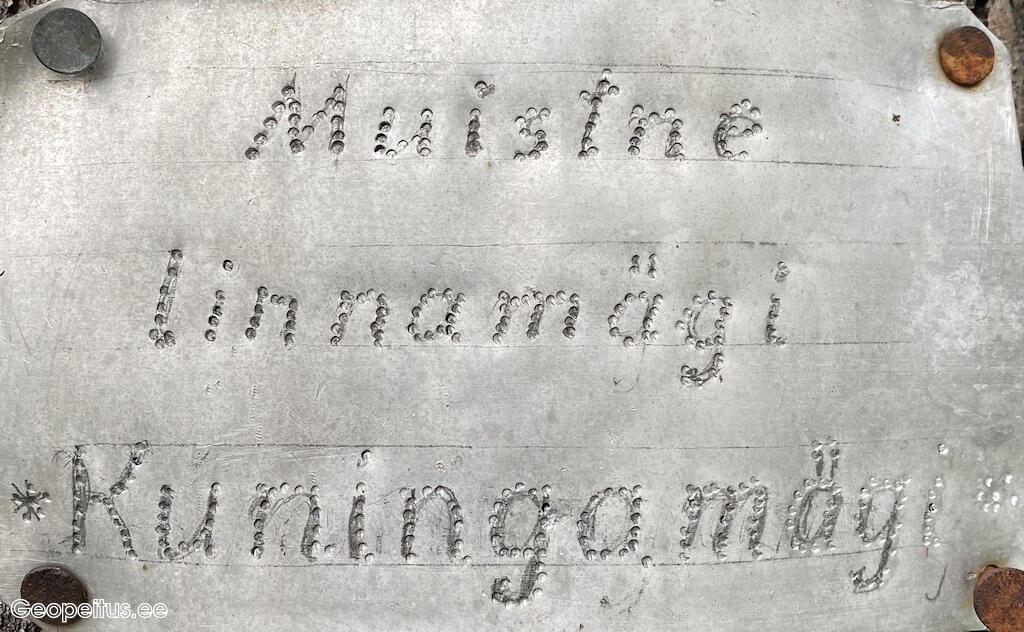 Muistne
linnamägi
*Kuningamägi*
Geopeitus.ee